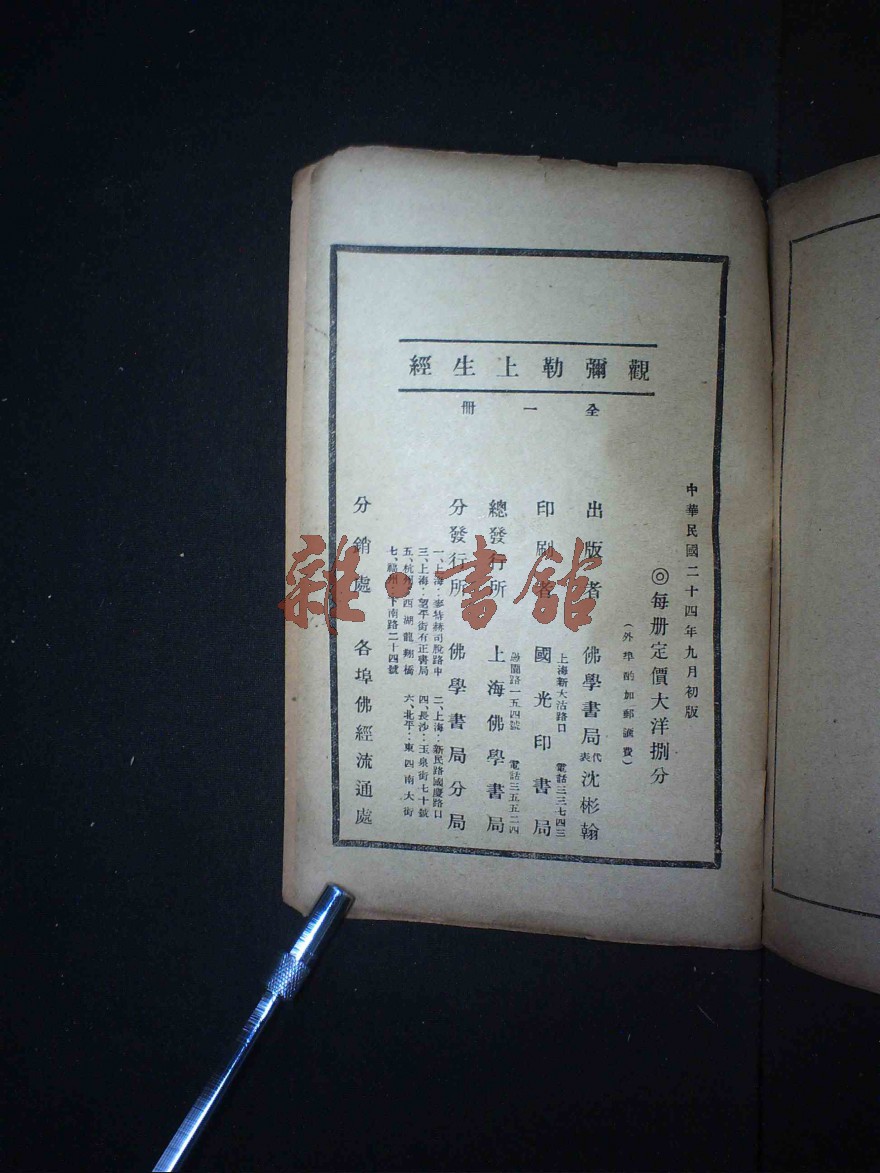 觀彌勒上生經
全一冊
中華民國二十四年九月初版
◎每册定價大洋捌分
(外埠酌加郵滙費)
出版者 佛學書局代表沈彬翰
上海新大沽路口 電話三三七四三
印刷者 國光印書局
路一五四號 電話三五五二四
總發行所 上海佛學書局
分發行所 佛學書局分局
一、上海:麥特赫司脫路中 二、上海:新民路國慶路口
三、上海:望平街有正書局 四、長沙:玉泉街七十號
五、杭州:西湖龍翔橋 六、北平:東四南大街
七、福州:下南路二十四號
分銷處 各埠佛經流通處
雜·書館